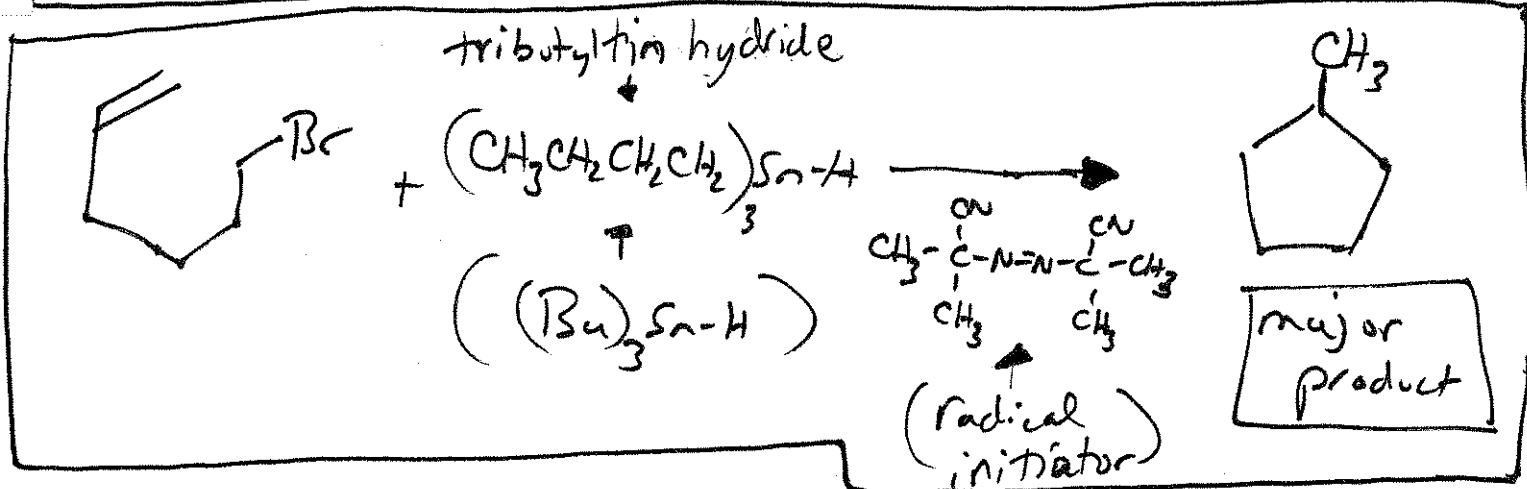 tributyltin hydride
Br
+ (CH₃CH₂CH₂CH₂)₃Sn-H
((Bu)₃Sn-H)
CN CN
CH₃-C-N=N-C-CH₃
CH₃ CH₃
(radical
initiator)
CH₃
major
product